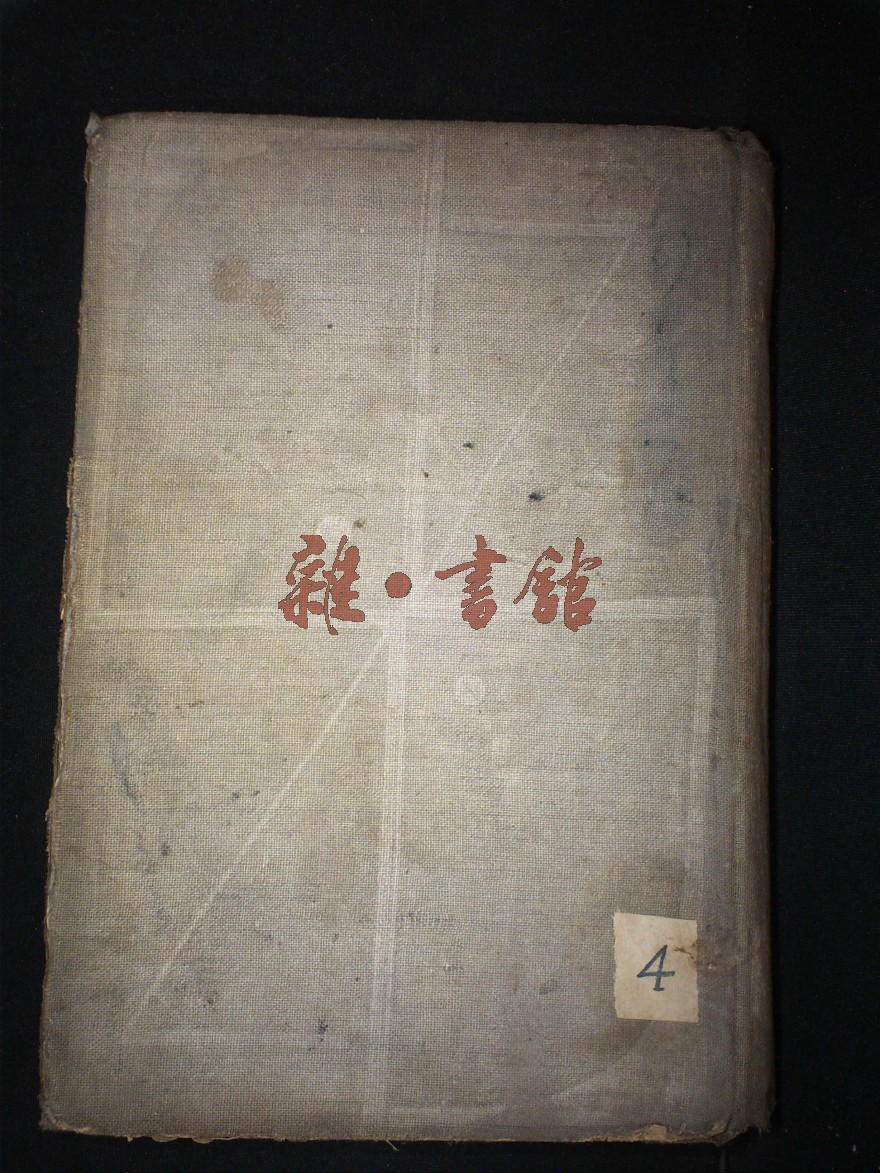 雜·書館
4